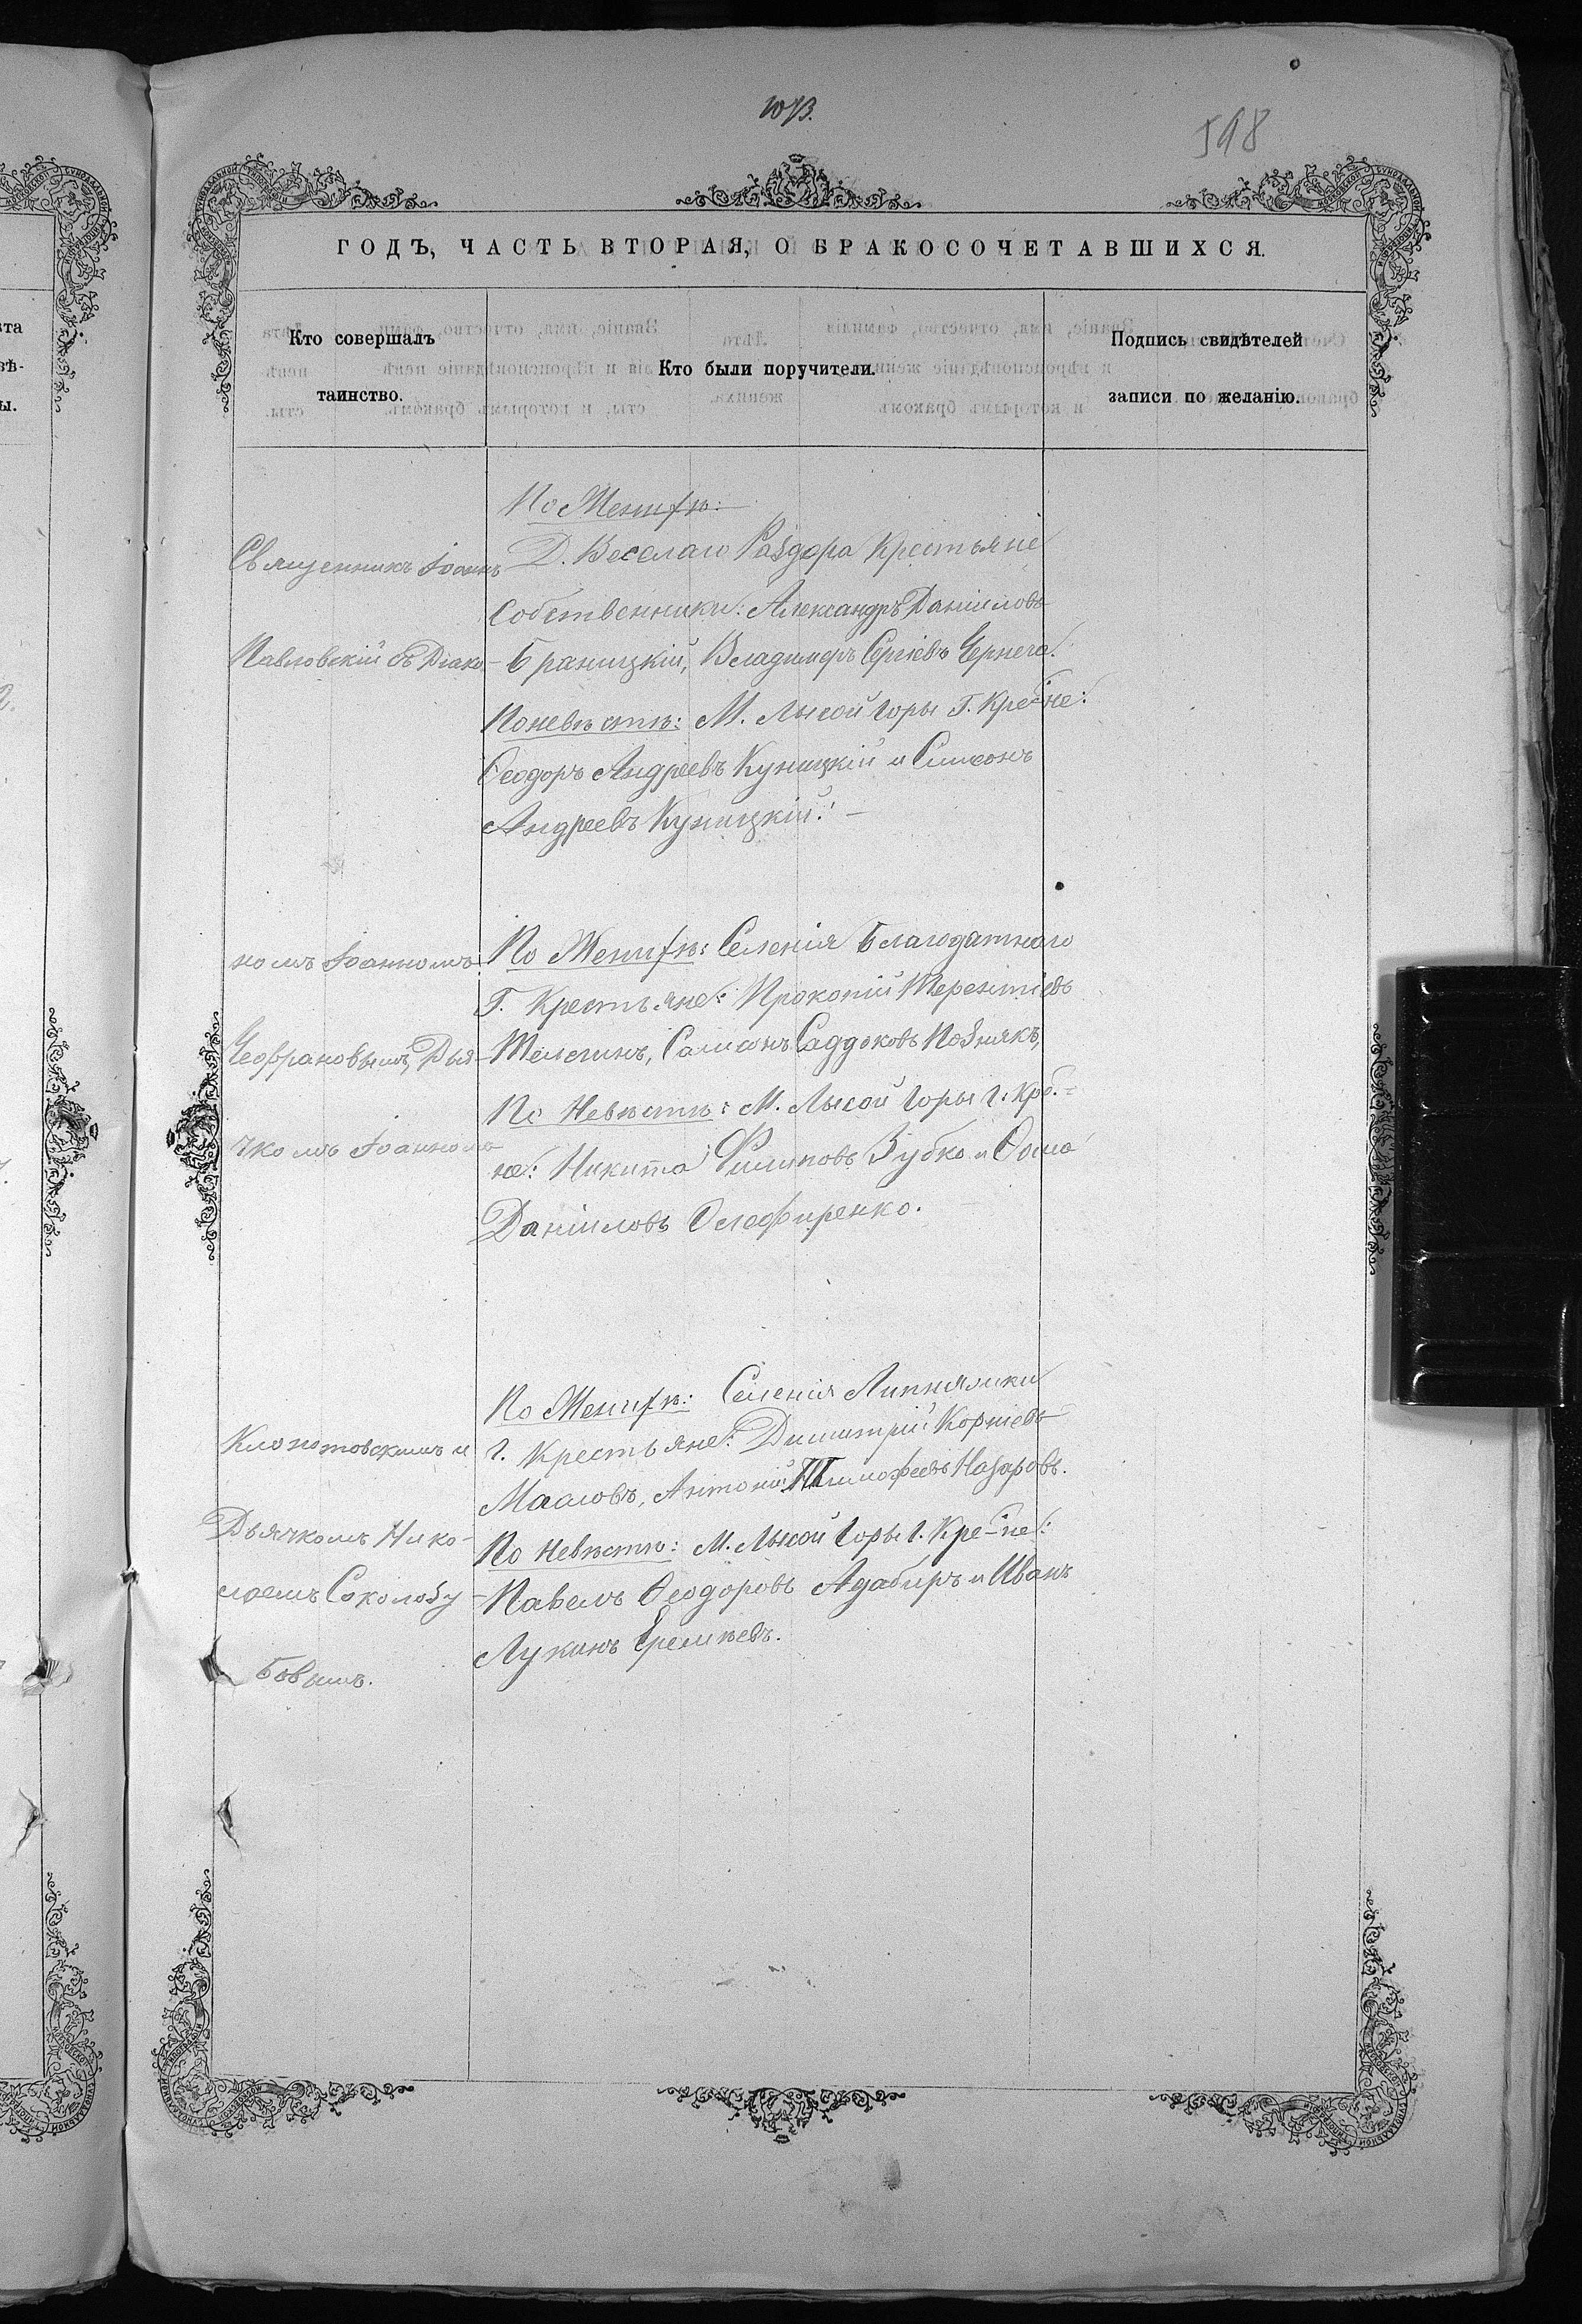 1073.
598
ГОДЪ, ЧАСТЬ ВТОРАЯ, О БРАКОСОЧЕТАВШИХСЯ.
Кто совершалъ
таинство.
Кто были поручители.
Подпись свидѣтелей
записи по желанію.
Священникъ Іоаннъ
Павловскій съ Діако-
номъ Іоанномъ
Чефрановымъ, Дья-
чкомъ Іоанномъ
Клопотовскимъ и
Дьячкомъ Нико-
лаемъ Соколову-
бовымъ.
По Женихѣ:
Д. Веселаго Раздора Крестьяне
собственники: Александръ Даніиловъ
Браницкій, Владимеръ Сергіевъ Чернега.
По невѣстѣ: М. Лысой Горы Г. Кре-не:
Ѳеодоръ Андреевъ Куницкій и Симеонъ
Андреевъ Куницкій.
По Женихѣ: Селенія Благодатнаго
Г. Крестьяне: Прокопій Терентіевъ
Телегинъ, Самсонъ Саддоковъ Познякъ,
По Невѣстѣ: М. Лысой Горы Г. Кре-
не: Никита Филиповъ Зубко и Ѳома
Даніиловъ Олефиренко.
По Женихѣ: Селенія Липняжки
Г. Крестьяне: Димитрій Корніевъ
Антоній Тимофеевъ Назаровъ.
По Невѣстѣ: М. Лысой Горы Г. Кре-не:
Павелъ Ѳеодоровъ Адабиръ и Иванъ
Лукинъ Еремѣевъ.